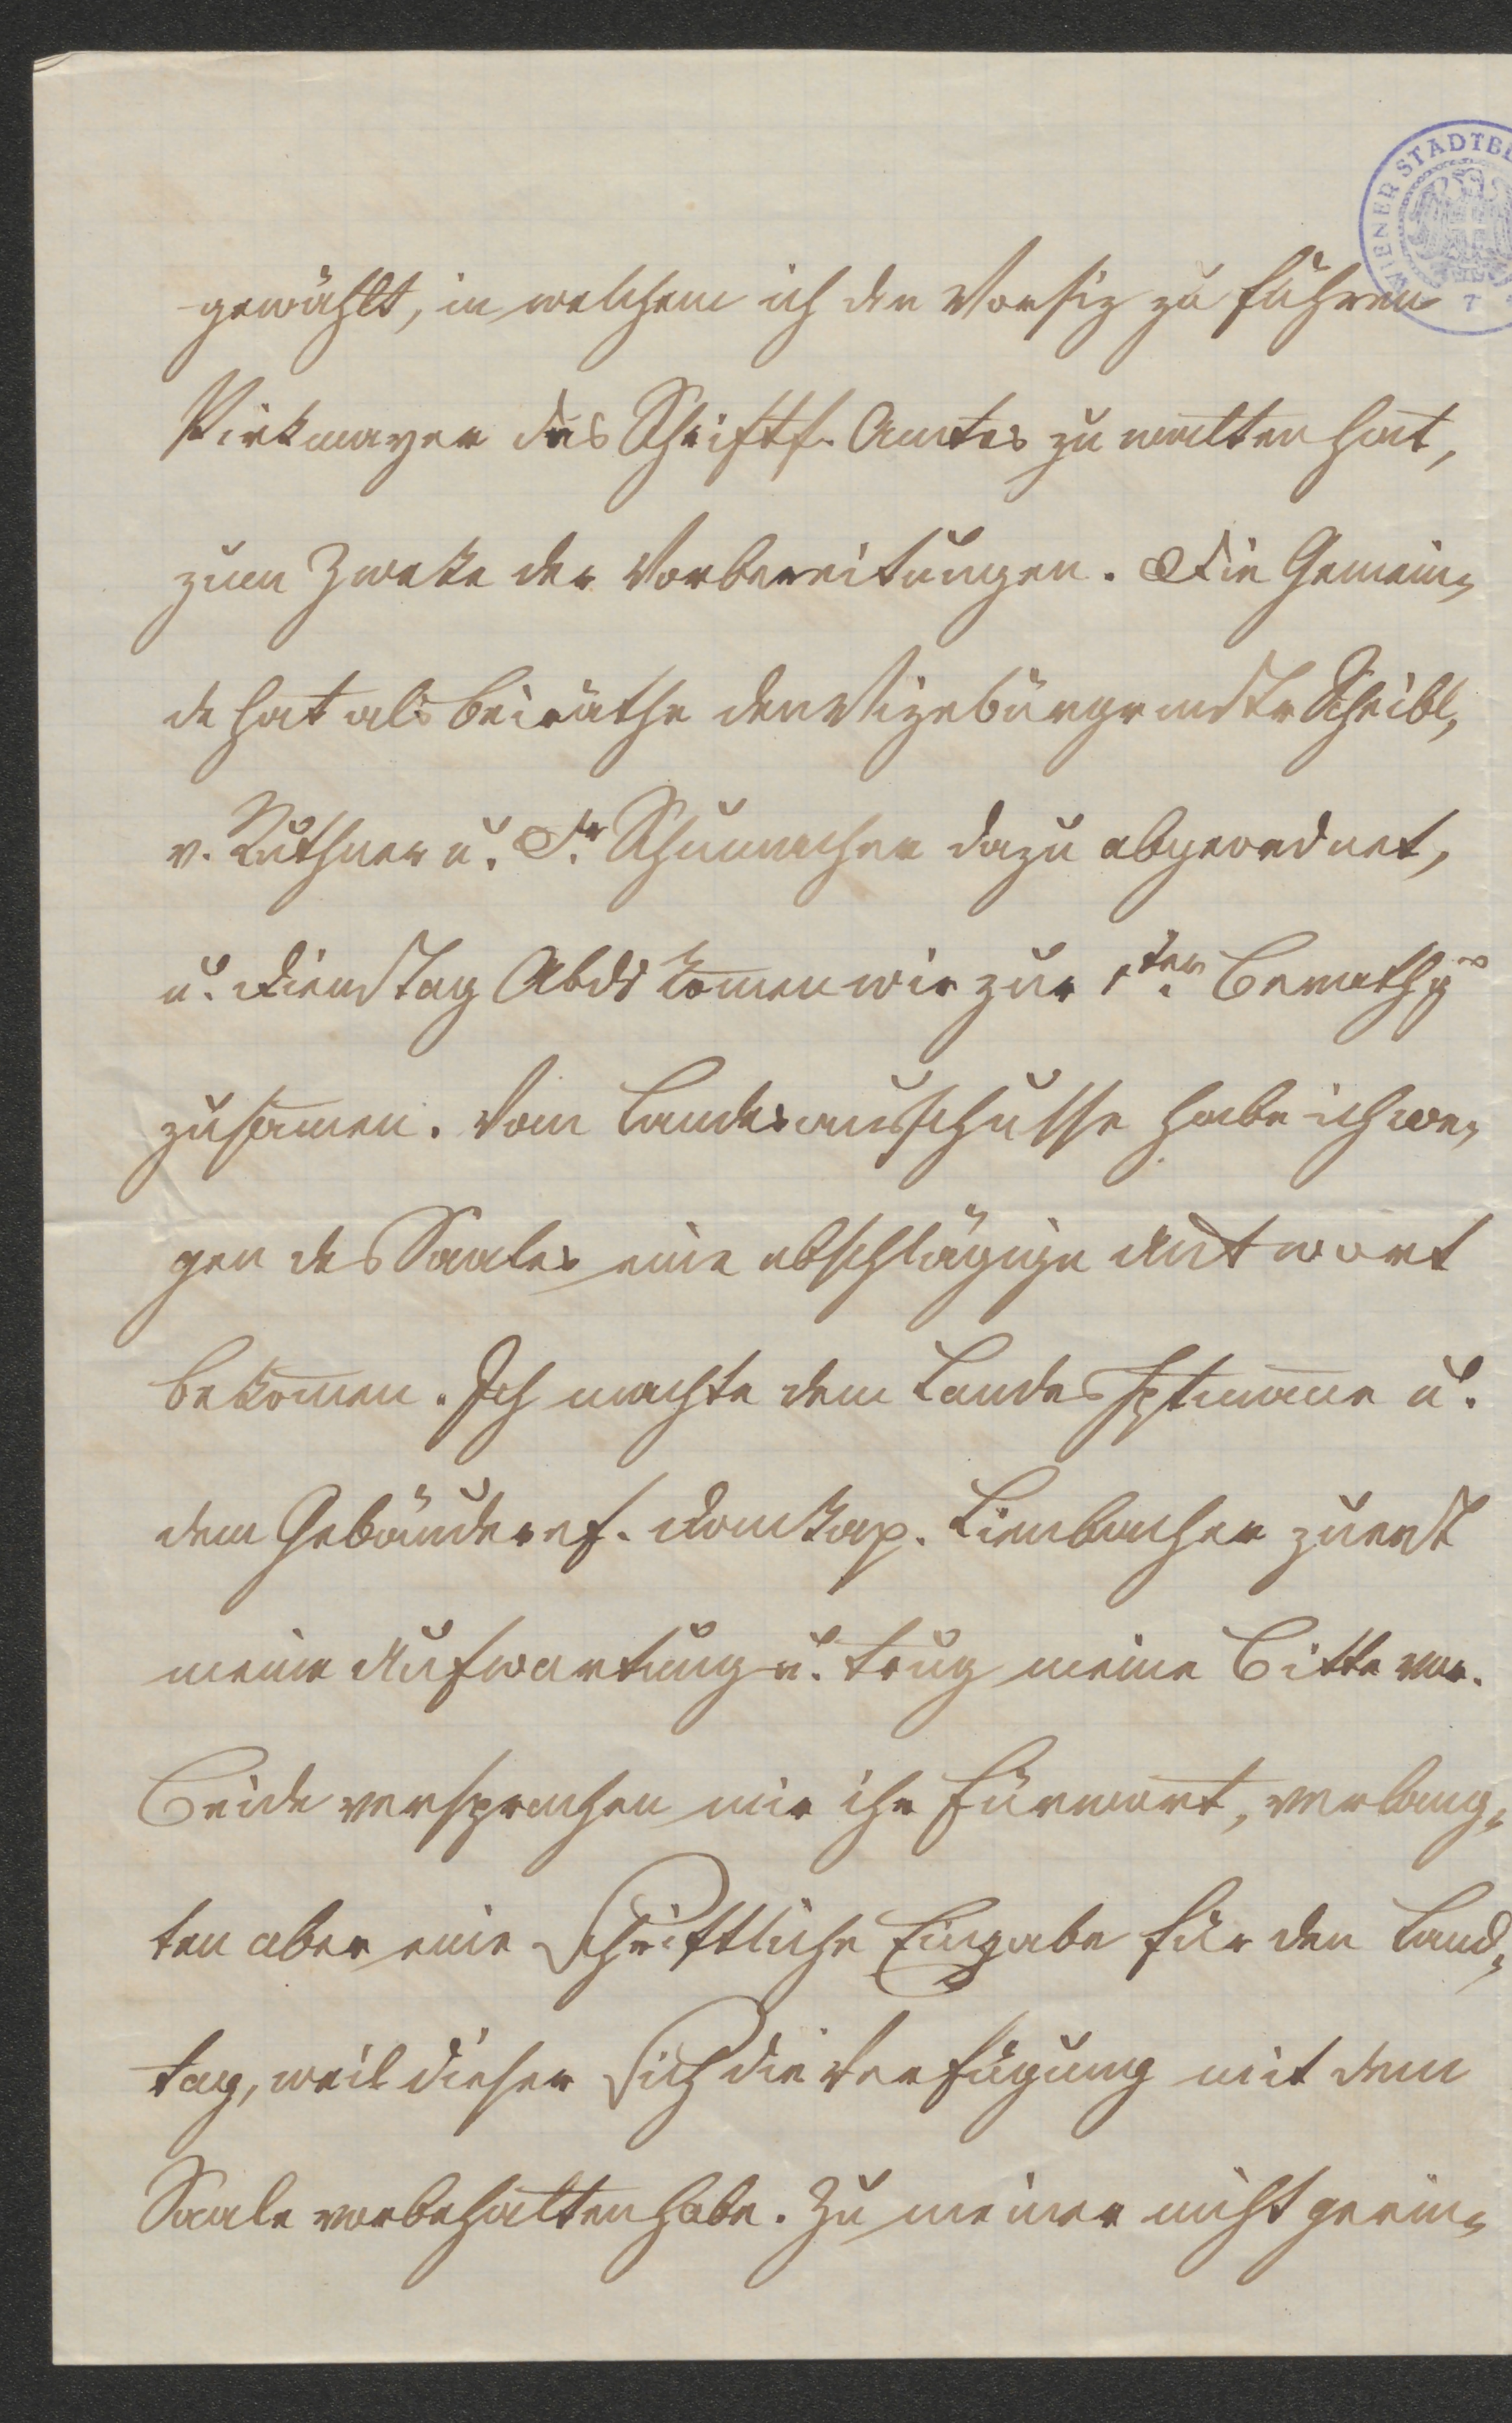 WIENER STADTBI
7
gewählt, in welchem ich den Vorsiz zu führen
Pirkmayer des Schriftf. Amtes zu walten hat,
zum Zweke der Vorbereitungen. Die Gemein-
de hat als Beiräthe den Vizebürgermstr Scheibl,
v. Ruthner u. Dr. Schumacher dazu abgeordnet,
u. Dienstag Abds kom̅en wir zur 1ten Berathg
zusam̅en. Vom Landesausschusse habe ich we-
gen des Saales eine abschlägige Antwort
bekom̅en. Ich machte dem Landeshptman̅e u.
dem Gebäuderef. Domkap. Lienbacher zuerst
meine Aufwartung u. trug meine Bitte vor.
Beide versprachen mir ihr Fürwort, verlang-
ten aber eine schriftliche Eingabe für den Land-
tag, weil dieser sich die Verfügung mit dem
Saale vorbehalten habe. Zu meiner nicht gerin-